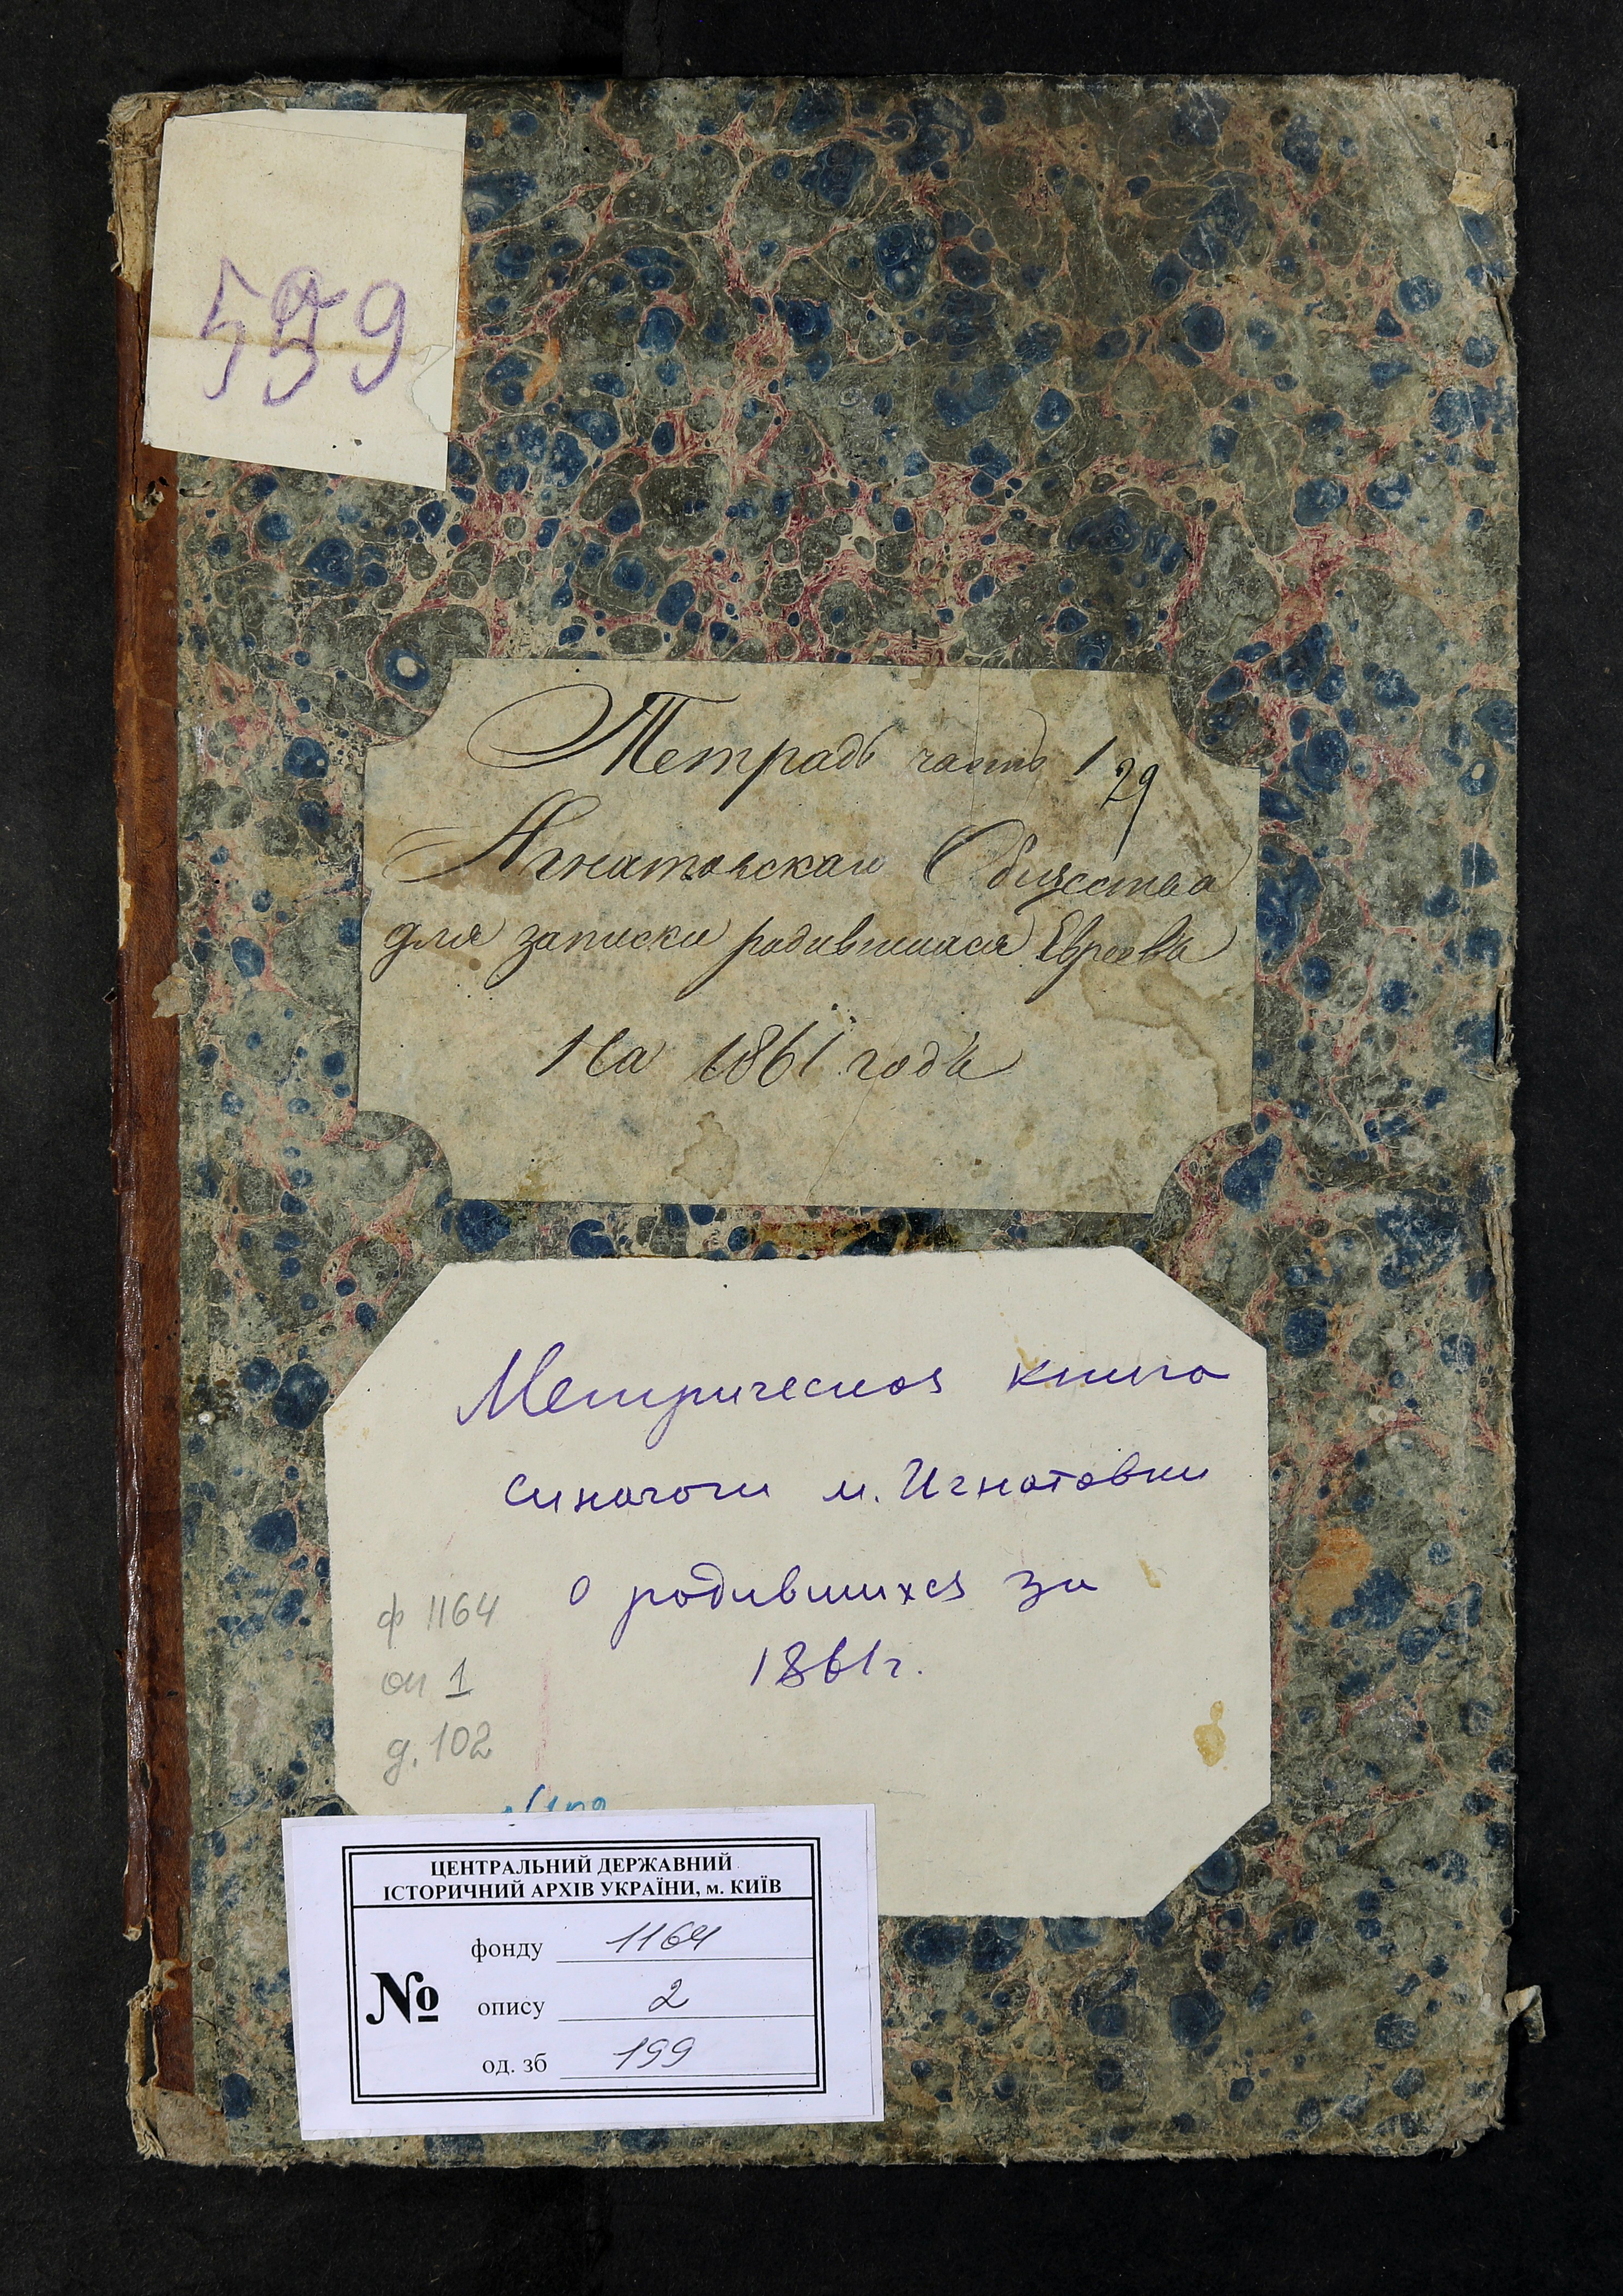 559
Тетрадь часть 1
29
Игнатовскаго Общества
для записки родившихся Евреевъ
На 1861 годъ
Метрическая книга
синагоги м. Игнатовки
о родившихся за
1861г.
ф 1164
оп 1
д. 102
ЦЕНТРАЛЬНИЙ ДЕРЖАВНИЙ
ІСТОРИЧНИЙ АРХІВ УКРАЇНИ, м. КИЇВ
№
фонду 1164
опису 2
од. зб 199